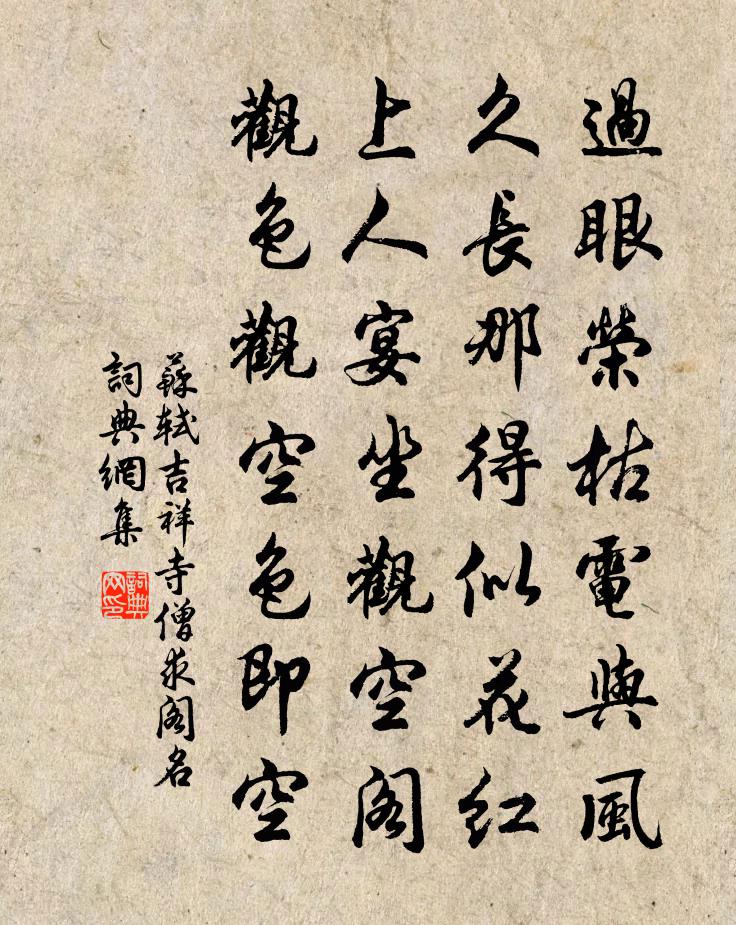 過眼榮枯電與風
久長那得似花紅
上人宴坐觀空閣
觀色觀空色即空
蘇軾吉祥寺僧求閣名
詞典網集
詞典网印